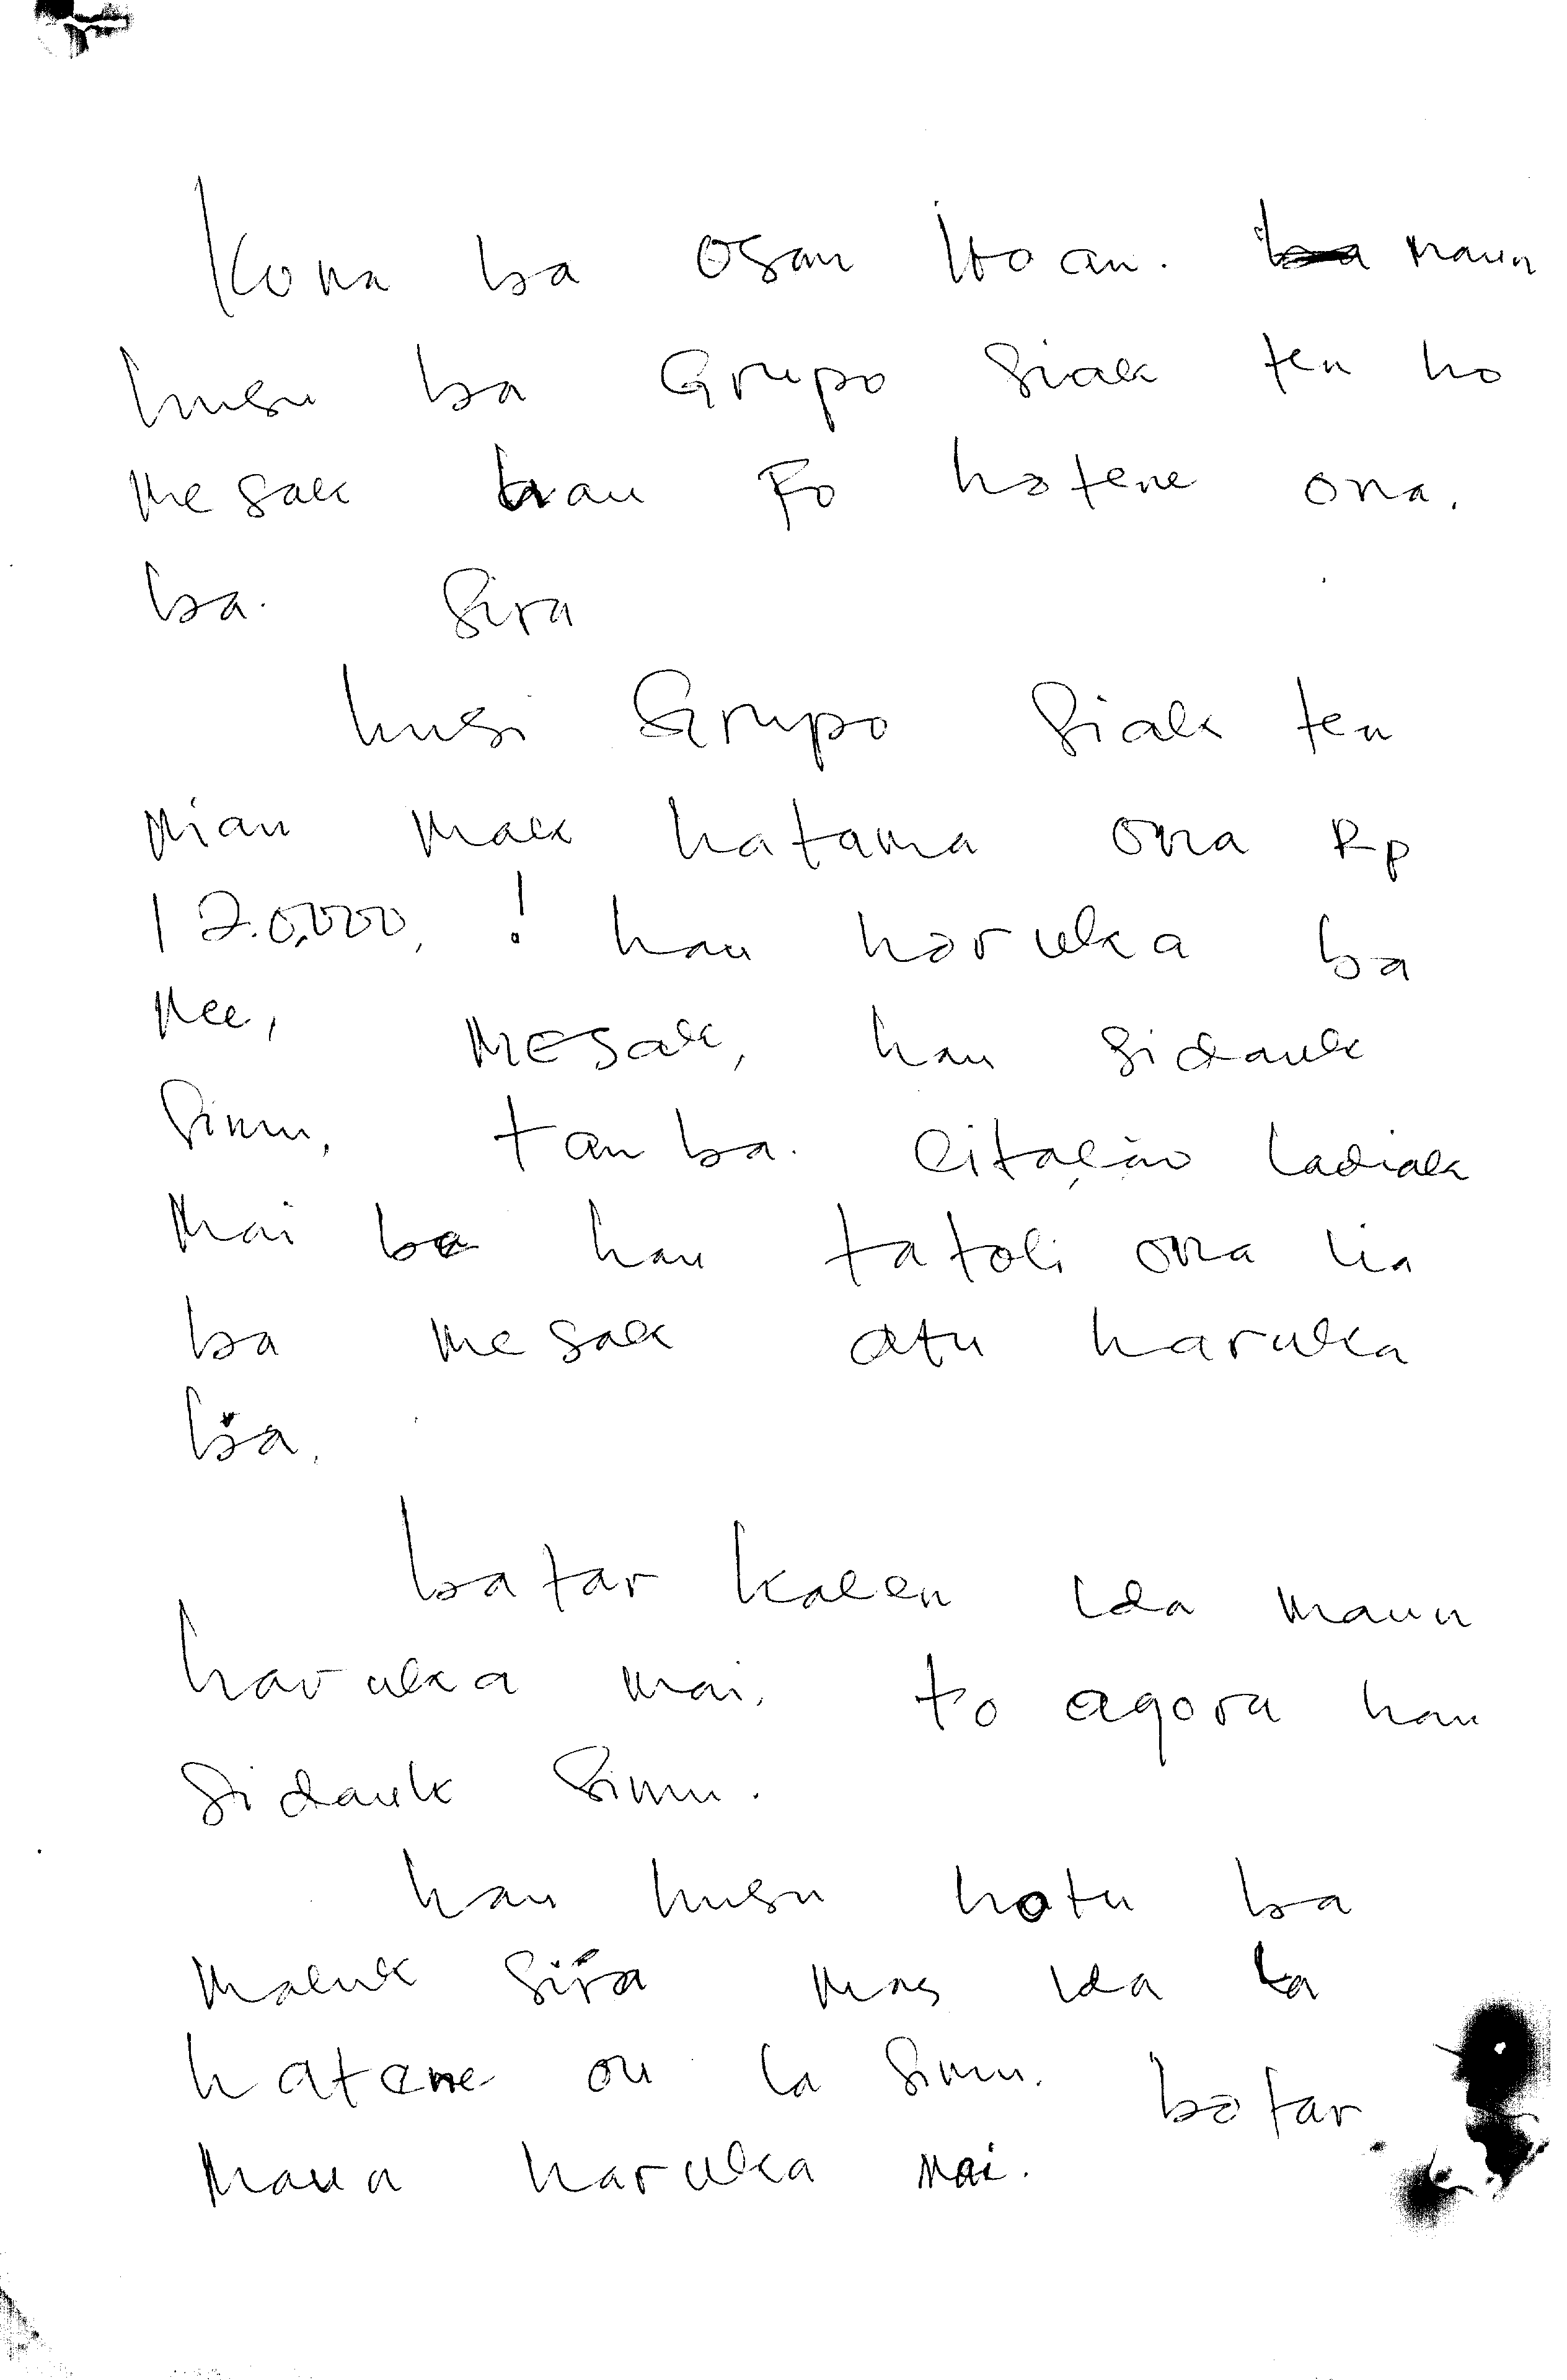 Kona ba osan itoan. maun
husu ba Grupo Siak ten ho
mesak hau Fo hatene ona.
ba. Sira
husi Grupo Siak ten
nian mak hatama ona Rp
120.000, ! hau haruka ba
nee, MESak, hau sidauk
simu, tan ba. Citação ladiak
mai be hau tatoli ona lia
ba mesak atu haruka
ba.
batar kalen ida maun
haruka mai. to agora hau
sidauk simu.
hau husu hotu ba
maluk sira mas ida la
hatene ou la simu. batar
maun haruka mai.